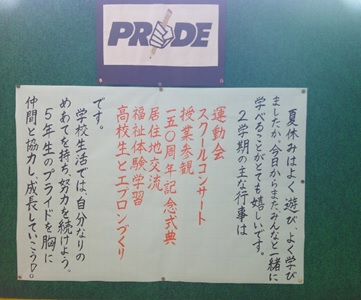 PRIDE
夏休みはよく遊び、よく学び
ましたか。今日からまた、みんなと一緒に
学べることがとても嬉しいです。
2学期の主な行事は
運動会
スクールコンサート
授業参観
一五〇周年記念式典
居住地交流
福祉体験学習
高校生とエプロンづくり
です。
学校生活では、自分なりの
めあてを持ち、努力を続けよう。
5年生のプライドを胸に
仲間と協力し、成長していこう!